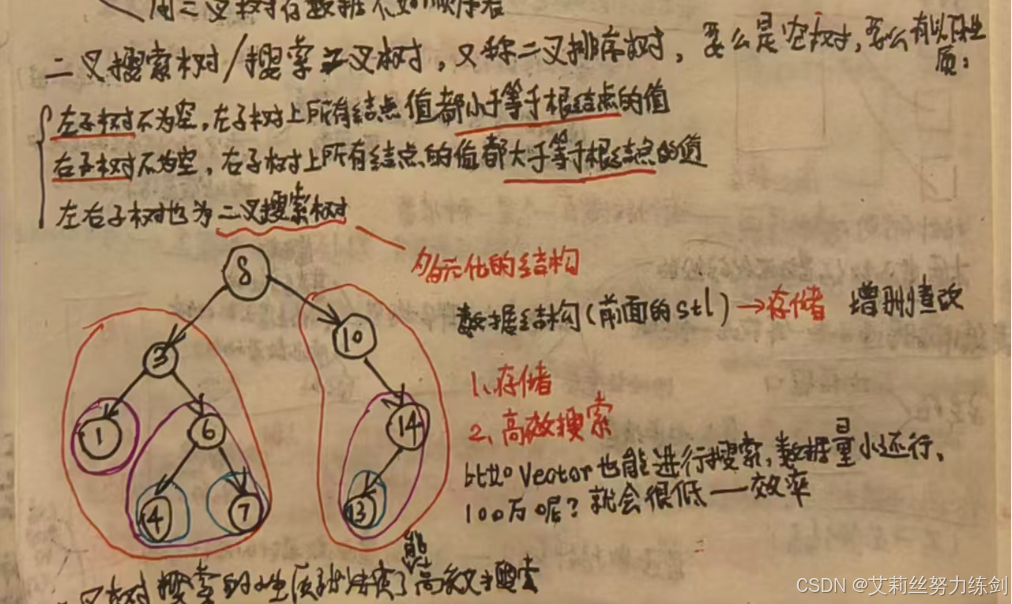 用二叉树存数据不如顺序表
二叉搜索树/搜索二叉树，又称二叉排序树，要么是空树，要么有以下性
质：
左子树不为空，左子树上所有结点值都小于等于根结点的值
右子树不为空，右子树上所有结点的值都大于等于根结点的值
左右子树也为二叉搜索树
多元化的结构
数据结构(前面的stl)→存储 增删查改
8
3
10
1
6
14
4
7
13
1、存储
2、高效搜索
比如vector也能进行搜索，数据量小还行、
100万呢？就会很低——效率
能
二叉树搜索的性质
高效搜索
CSDN @艾莉丝努力练剑